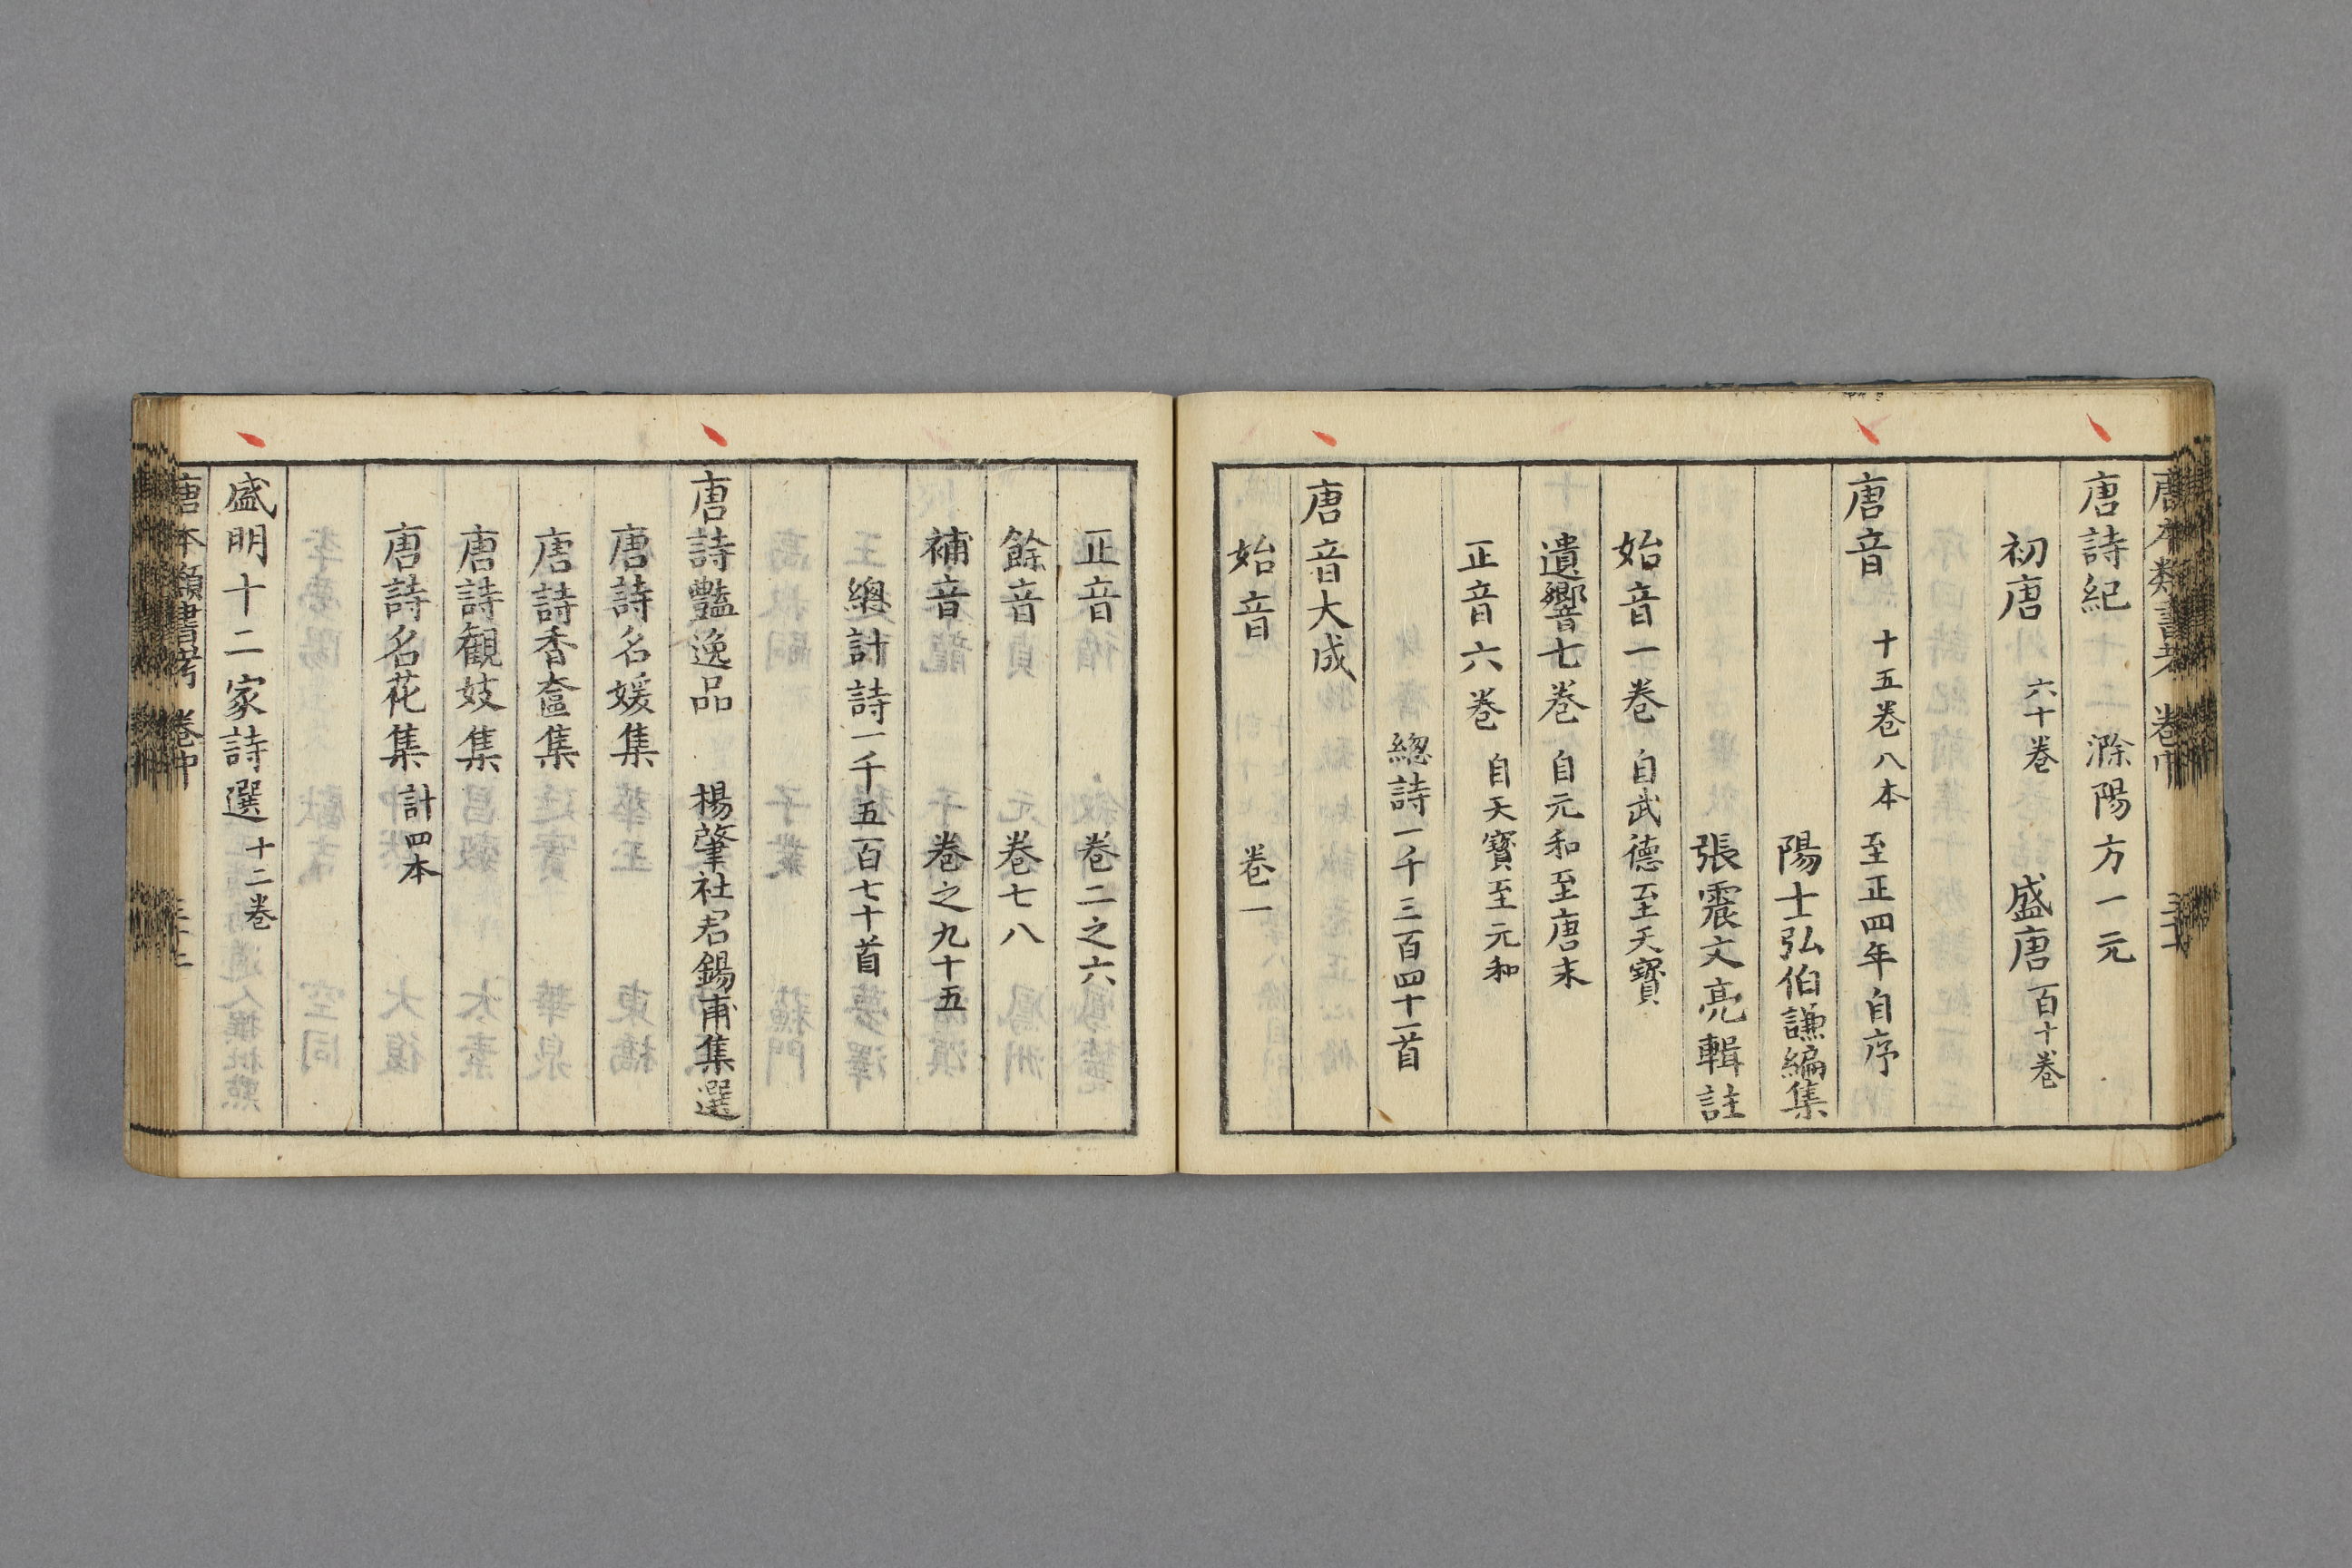 唐本類書考 卷中
唐詩紀 滁陽方一元
初唐 六十卷 盛唐 百十卷
唐音 十五卷八本 至正四年自序
陽士弘伯謙編集
張震文亮輯註
始音一卷 自武德至天寶
遺響七卷 自元和至唐末
正音六卷 自天寶至元和
總詩一千三百四十一首
唐音大成
始音 卷一
正音 卷二之六
餘音 卷七八
補音 卷之九十五
總計詩一千五百七十首
唐詩豔逸品 楊肇社君錫甫集選
唐詩名媛集
唐詩香奩集
唐詩觀妓集
唐詩名花集 計四本
盛明十二家詩選 十二卷
唐本類書考 卷中